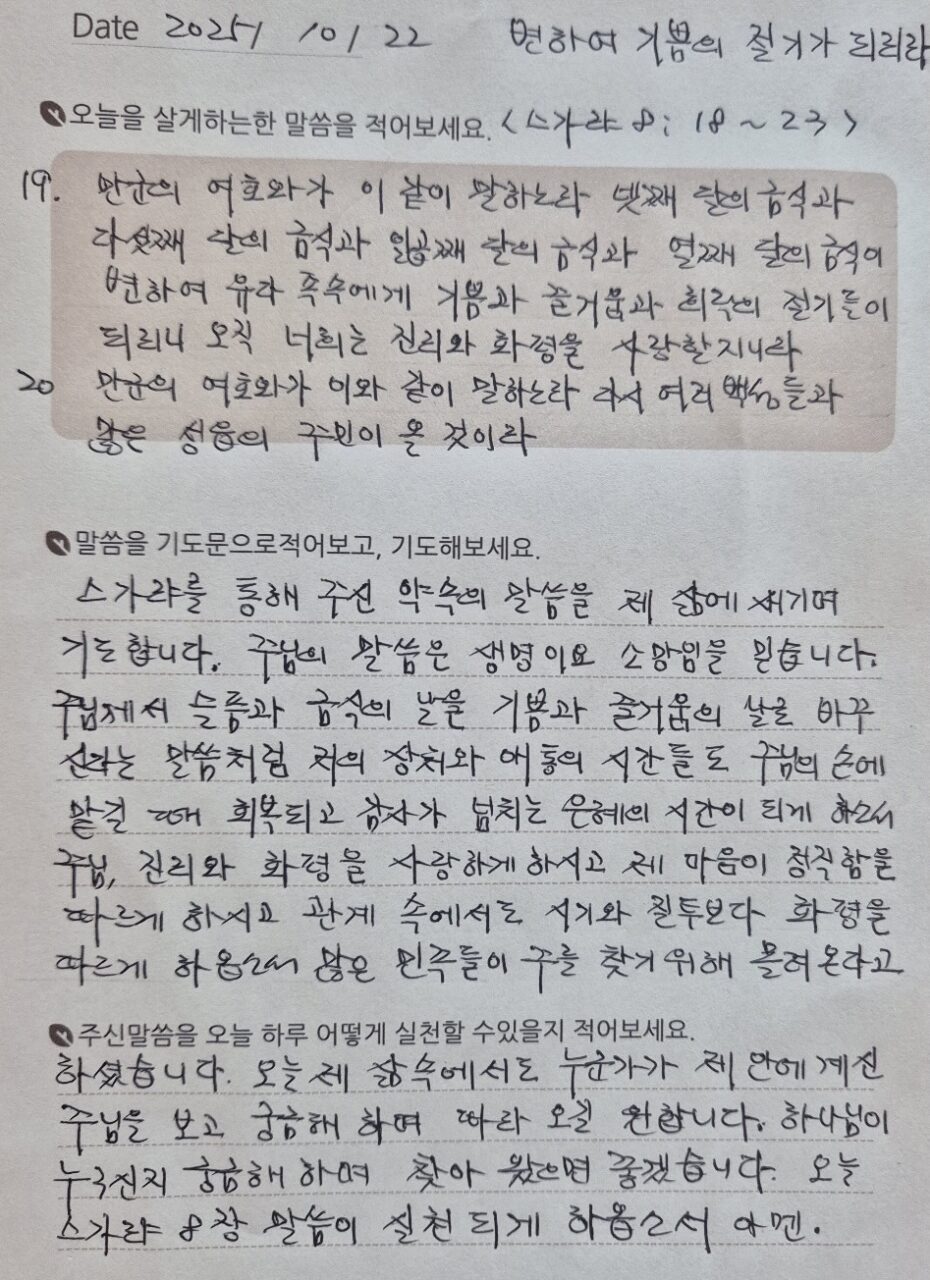 Date 2025 / 10 / 22 변하여 기쁨의 절기가 되리라
오늘을 살게하는한 말씀을 적어보세요. <스가랴 8 : 18 ~ 23>
19. 만군의 여호와가 이 같이 말하노라 넷째 달의 금식과
다섯째 달의 금식과 일곱째 달의 금식과 열째 달의 금식이
변하여 유다 족속에게 기쁨과 즐거움과 희락의 절기들이
되리니 오직 너희는 진리와 화평을 사랑할지니라
20 만군의 여호와가 이와 같이 말하노라 다시 여러 백성들과
많은 성읍의 주민이 올 것이라
말씀을 기도문으로적어보고, 기도해보세요.
스가랴를 통해 주신 약속의 말씀을 제 삶에 새기며
기도합니다. 주님의 말씀은 생명이요 소망임을 믿습니다.
주님께서 슬픔과 금식의 날을 기쁨과 즐거움의 날로 바꾸
신다는 말씀처럼 저의 상처와 애통의 시간들도 주님의 손에
맡길 때에 회복되고 감사가 넘치는 은혜의 시간이 되게 하소서
주님, 진리와 화평을 사랑하게 하시고 제 마음이 정직함을
따르게 하시고 관계 속에서도 시기와 질투보다 화평을
따르게 하옵소서 많은 민족들이 주를 찾기 위해 몰려온다고
주신말씀을 오늘 하루 어떻게 실천할 수있을지 적어보세요.
하셨습니다. 오늘 제 삶 속에서도 누군가가 제 안에 계신
주님을 보고 궁금해 하며 따라 오길 원합니다. 하나님이
누구신지 궁금해 하며 찾아 왔으면 좋겠습니다. 오늘
스가랴 8장 말씀이 실천 되게 하옵소서 아멘.